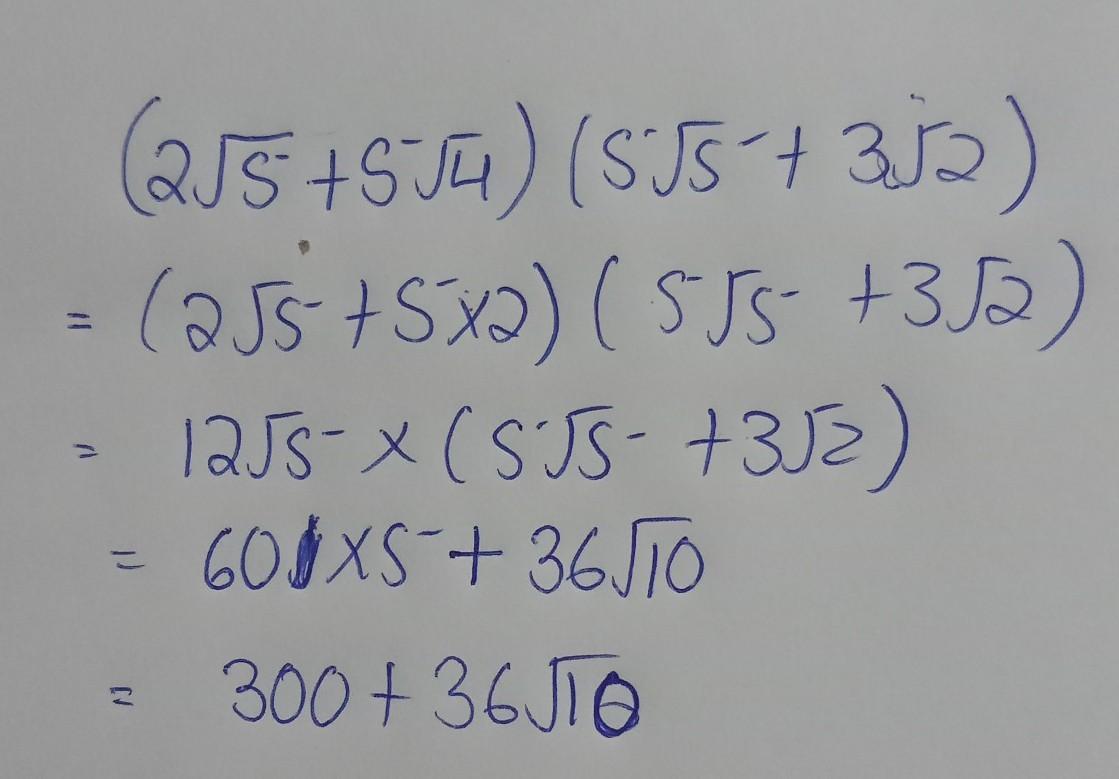 (2√5+5√4)(5√5+3√2)
=(2√5+5×2)(5√5+3√2)
=12√5×(5√5+3√2)
=60×5+36√10
=300+36√10